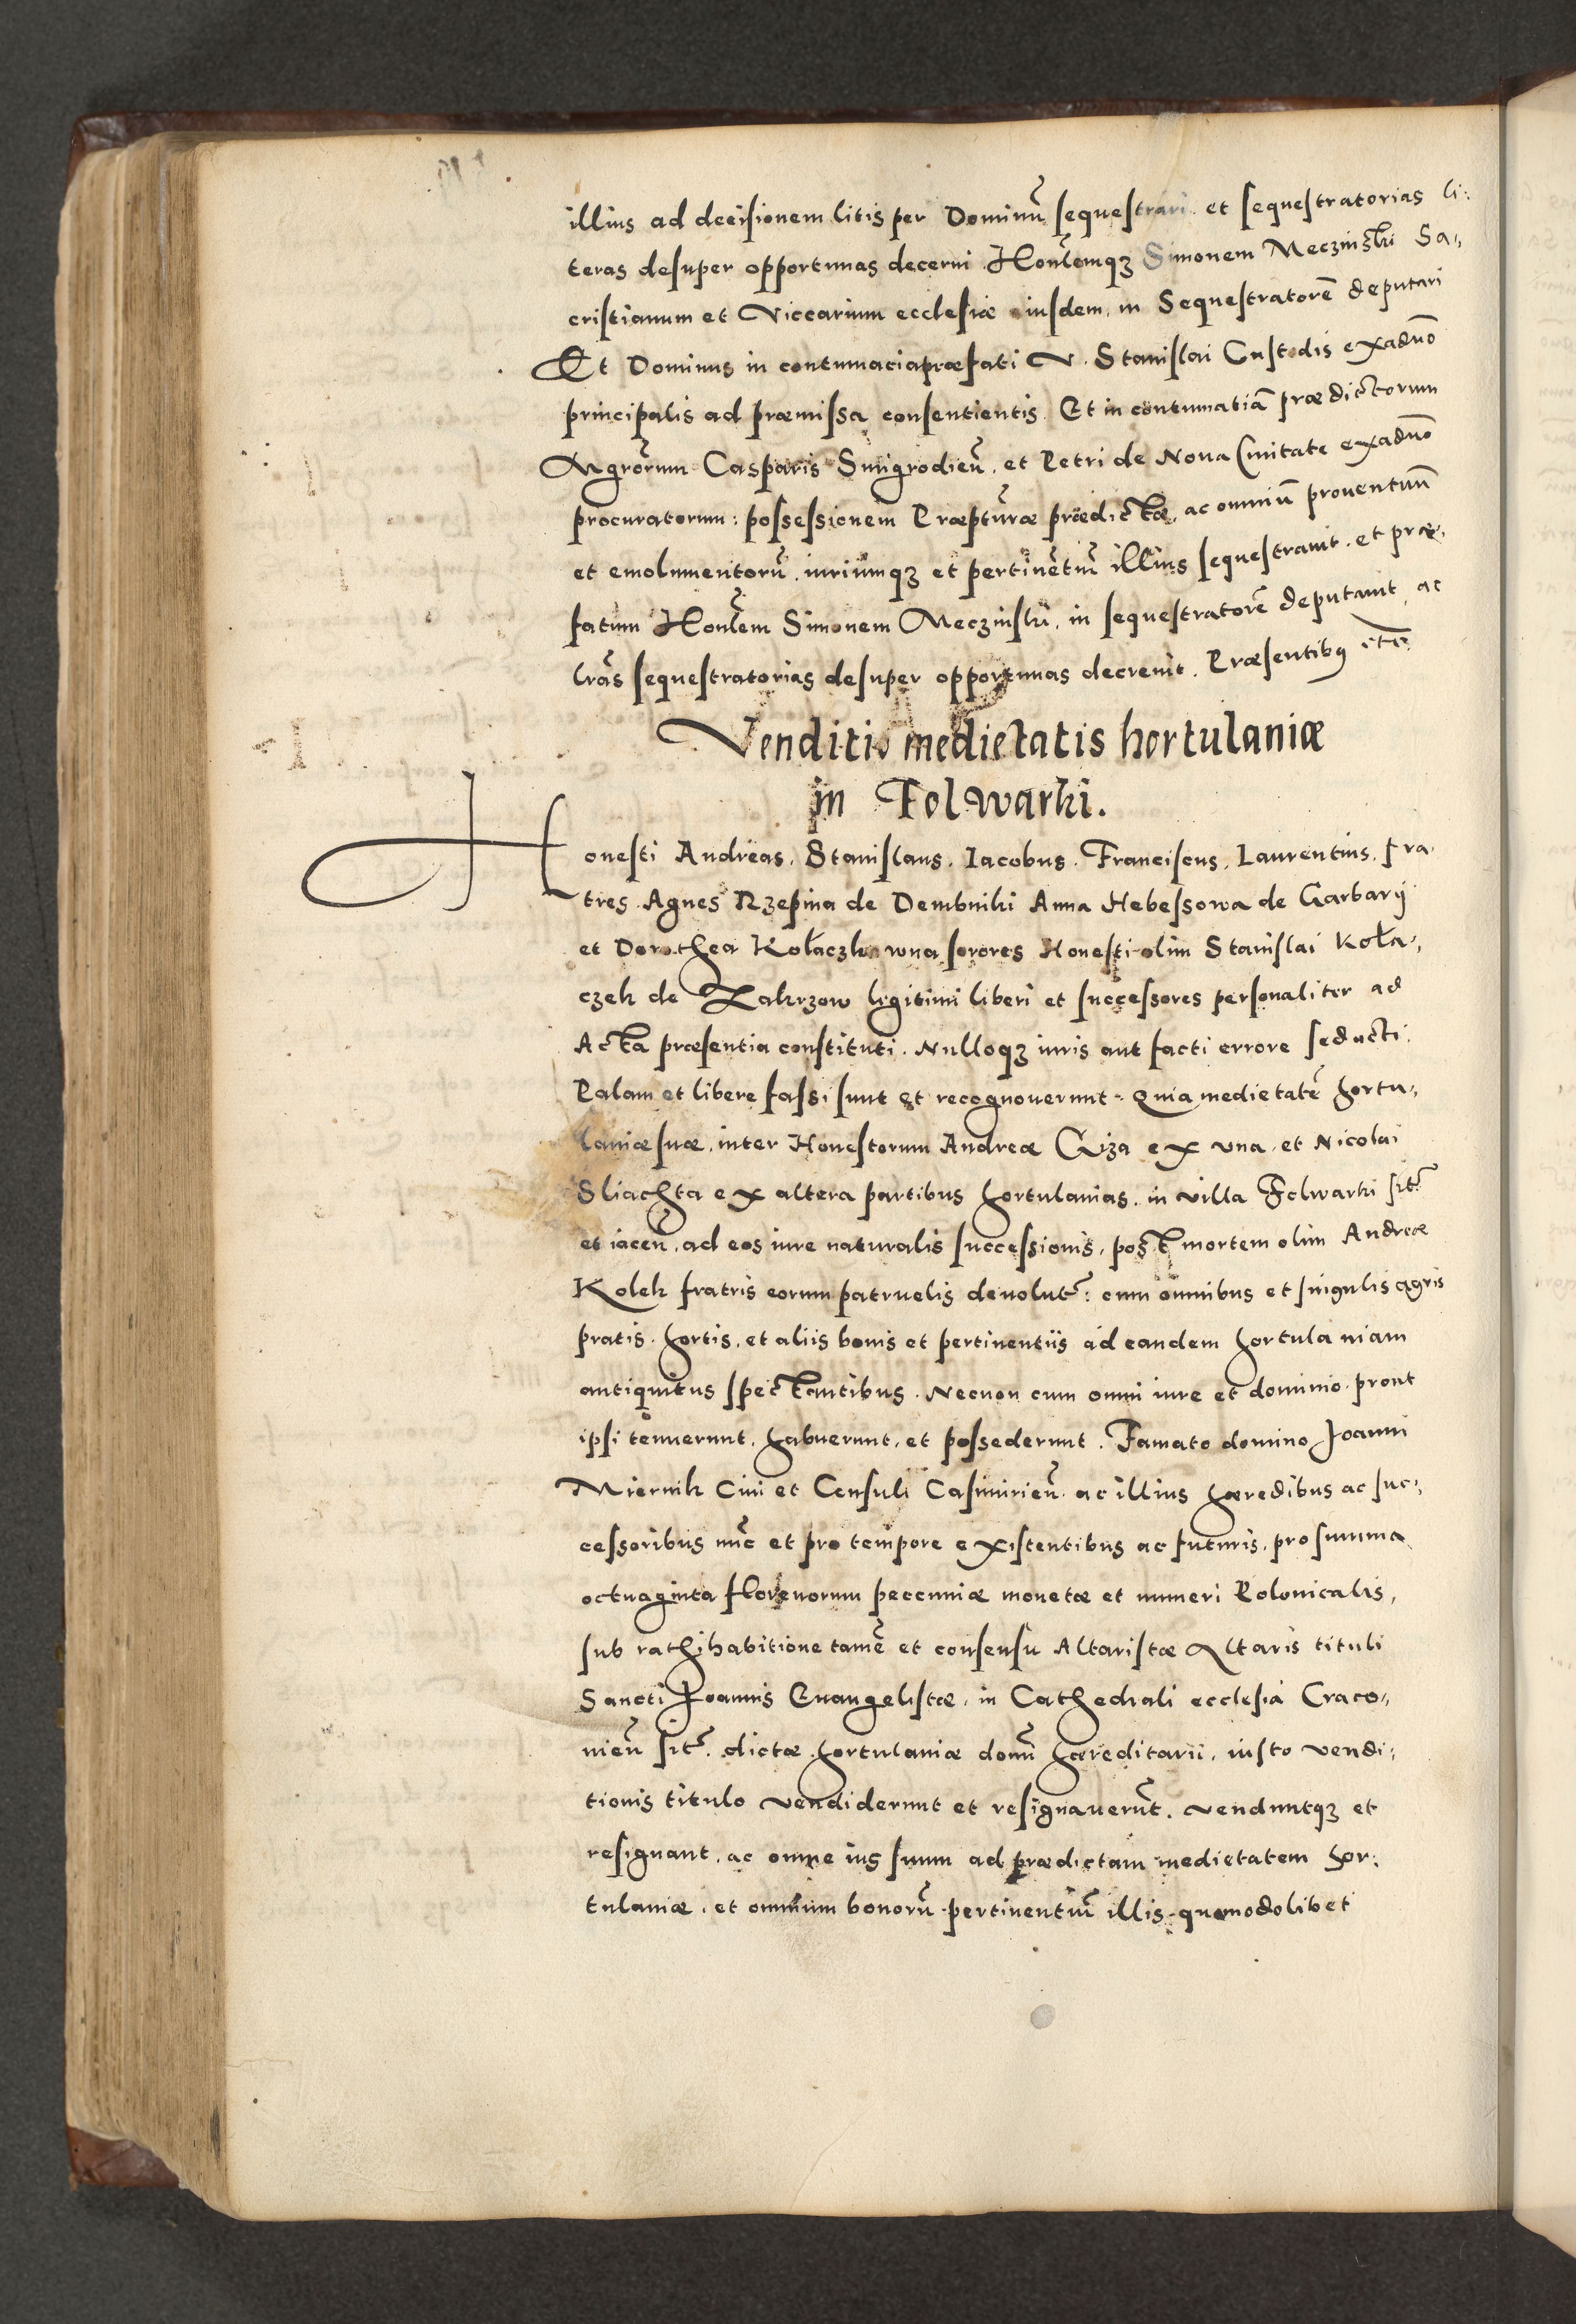 illius ad decisionem litis per Dominũ sequestrari et sequestratorias li:
teras desuper opportunas decerni Honẽlemqȝ Simonem Meczinski Sa,,
cristianum et Viccarium ecclesiæ eiusdem, in Sequestratorẽ deputari
Et Dominus in contumacia præfati N. Stanislai Custodis ex aduo
principalis ad præmissa consentientis. Et in contumatiã prædictorum
Mgrorum Casparis Smigrodieñ. et Petri de Noua Ciuitate ex aduo
procuratorum: possessionem Præpturæ prædictæ, ac omniũ prouentuũ
et emolumentorũ, iuriumqȝ et pertinẽtiũ illius sequestrauit. et præ,
fatum Honlẽm Simonem Meczinski, in sequestratorẽ deputauit, ac
lrãs sequestratorias desuper opportunas decreuit. Præsentibꝯ etc̃
Venditio medietatis hortulaniæ
in Folwarki.
Honesti Andreas, Stanislaus, Iacobus, Franciscus, Laurentius, fra,
tres Agnes Rzepina de Dembniki Anna Hebessowa de Garbary
et Dorothea Kołaczkowna sorores Honesti olim Stanislai Koła,,
czek de Zakrzow legitimi liberi et successores personaliter ad
Acta præsentia constituti. Nulloqȝ iuris aut facti errore seducti.
Palam et libere fassi sunt et recognouerunt. Quia medietatẽ hortu,,
laniæ suæ, inter Honestorum Andreæ Giza ex vna, et Nicolai
Sliachta ex altera partibus hortulanias, in villa Folwarki sit̃
et iaceñ, ad eos iure naturalis successionis, post mortem olim Andreæ
Kolek fratris eorum patruelis deuolut̃: cum omnibus et singulis agris
pratis, hortis, et aliis bonis et pertinentiis ad eandem hortulaniam
antiquitus spectantibus. Necnon cum omni iure et dominio, prout
ipsi tenuerunt, habuerunt, et possederunt. Famato domino Joanni
Miernik Ciui et Consuli Casimirieñ. ac illius hæredibus ac suc,,
cessoribus nũc et pro tempore existentibus ac futuris, pro summa
octuaginta florenorum pecuniæ monetæ et numeri Polonicalis,
sub rathihabitione tamẽ et consensu Altaristæ Altaris tituli
Sancti Joannis Euangelistæ, in Cathedrali ecclesia Craco,,
uieñ sit̃. dictæ hortulaniæ domĩ hæreditarii, iusto vendi:
tionis titulo vendiderunt et resignauerũt. Venduntqȝ et
resignant, ac omne ius suum ad prædictam medietatem hor:
tulaniæ, et omnium bonorũ pertinentiũ illis quomodolibet